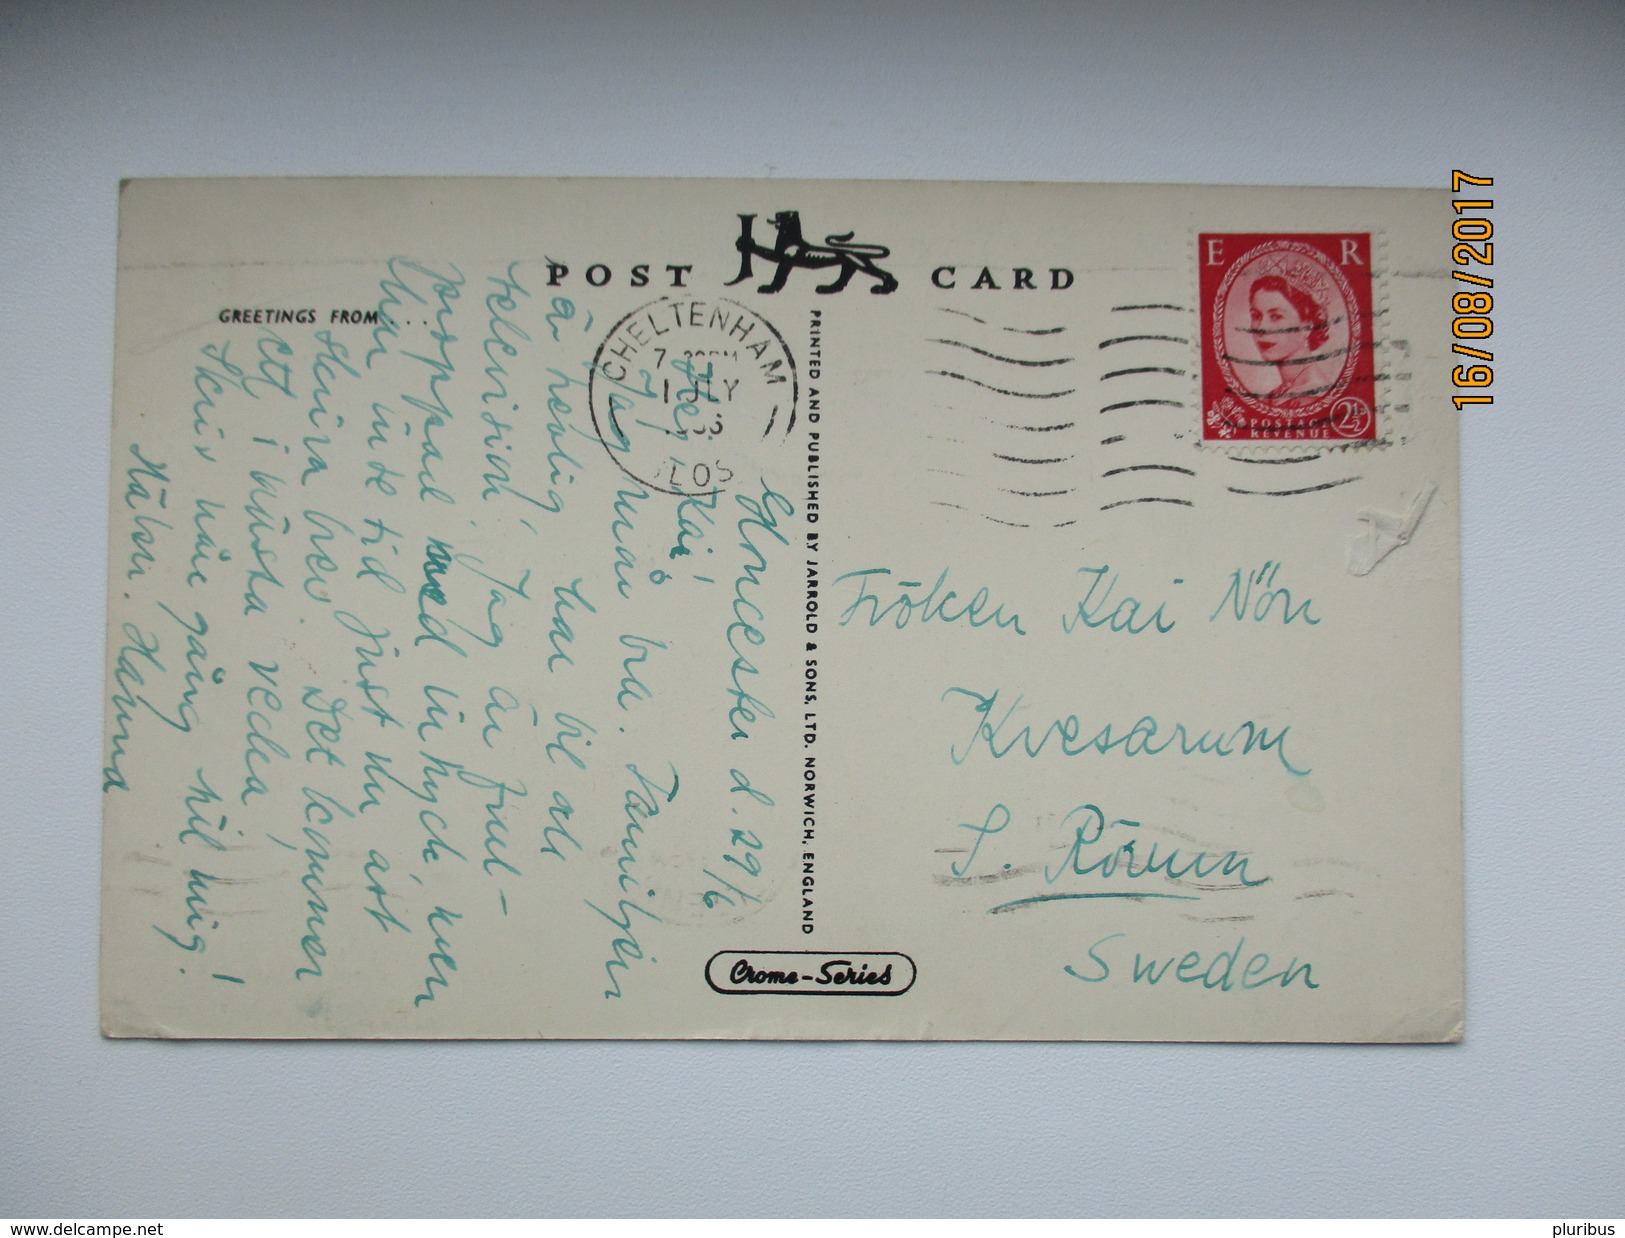 POST CARD
GREETINGS FROM . . .
CHELTENHAM
1 JLY
GLOS
PRINTED AND PUBLISHED BY JARROLD & SONS, LTD. NORWICH, ENGLAND
Crome-Series
E R
POSTAGE
REVENUE
2½D
Gloucester d. 29/6
Hej, Kai!
Jag mår bra. Familjen
är hemlig har bil och
television. Jag är fruk-
proppad med intryck, men
har inte tid just nu att
skriva brev. Det kommer
ett i nästa vecka,
Skriv när gång till mig!
Hälsn. Hanna
Fröken Kai Nön
Kvesarum
S. Rörum
Sweden
16/08/2017
www.delcampe.net
pluribus